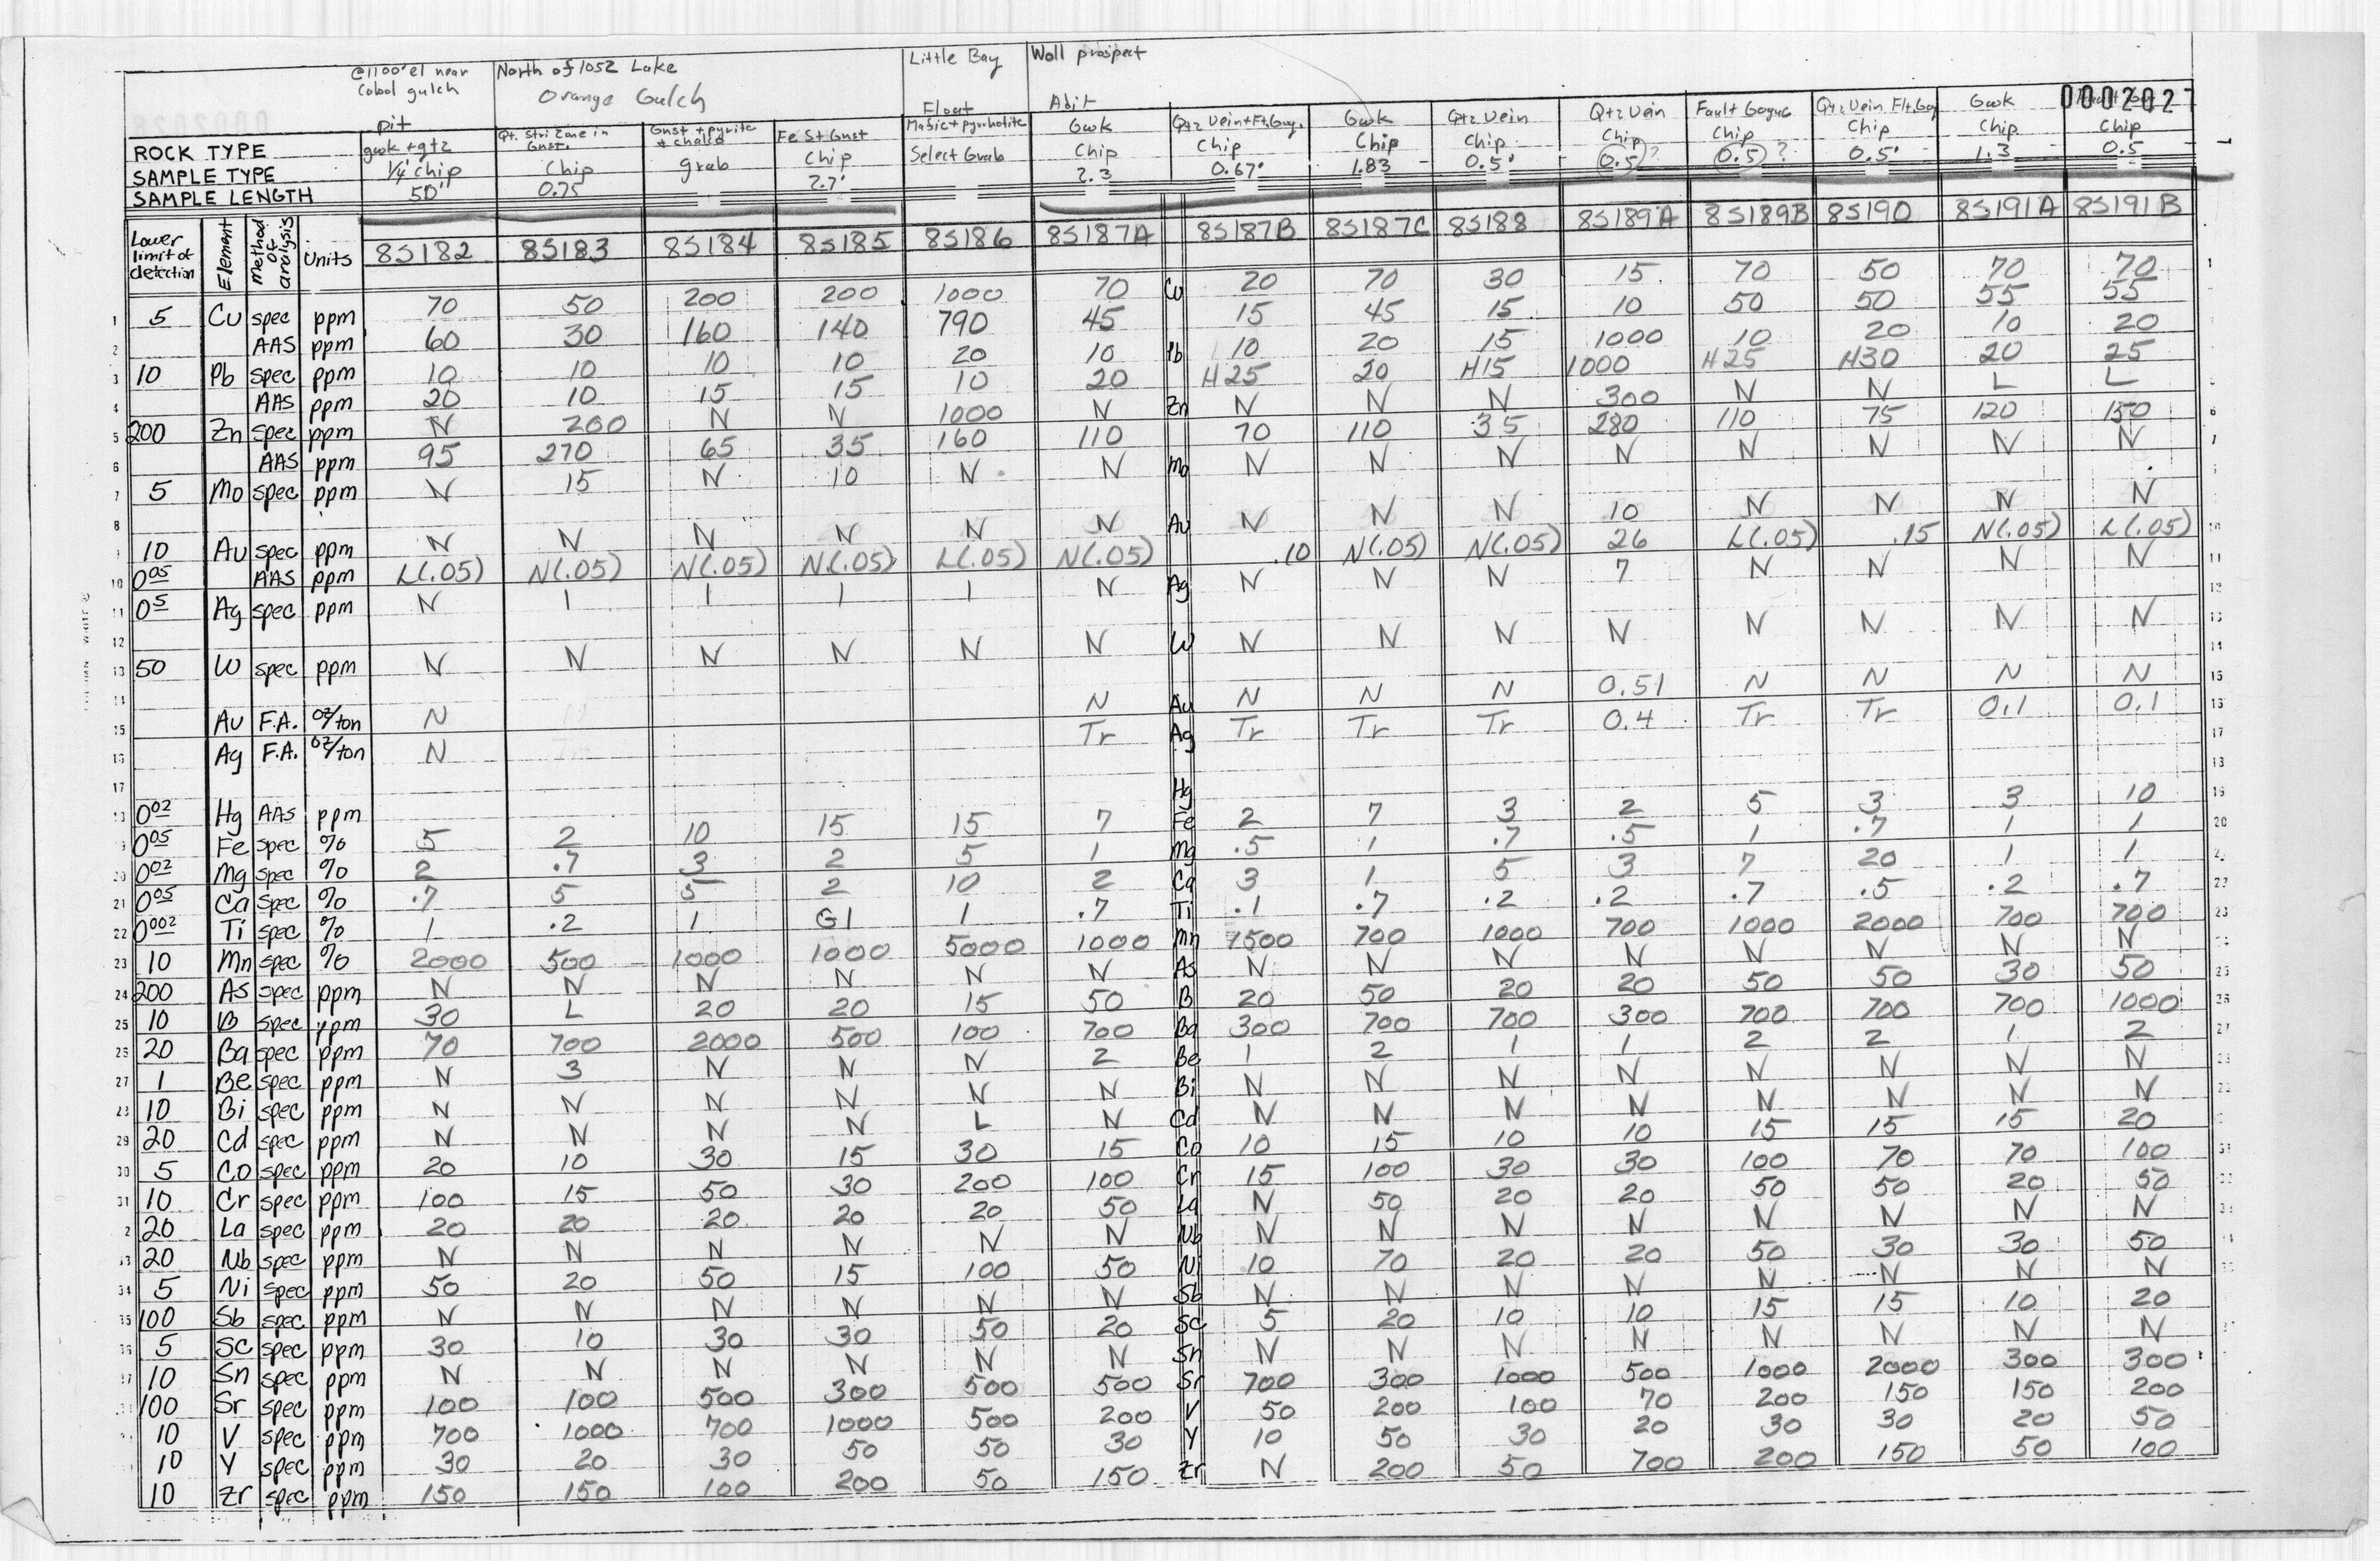 @1100'el near North of 1052 Lake Little Bay Wall prospect
Cobol gulch Orange Gulch
Float Adit
Pit
ROCK TYPE gwk + qtz Qt. Stri Zone in Gnst. Gnst + pyrite + chalco Fe St Gnst Masic + pyrrhotite Gwk Qtz Vein + Flt. Gug. Gwk Qtz Vein Qtz Vein Fault Gogue Qtz Vein Flt. Gog Gwk
SAMPLE TYPE 1/4' chip Chip grab Chip Select Grab Chip Chip Chip Chip Chip Chip Chip Chip Chip
SAMPLE LENGTH 50' 0.75 2.7' 2.3 0.67' 1.83 0.5' 0.5? 0.5? 0.5' 1.3 0.5
0002027
Lower limit of detection Element Method of analysis Units 8S182 8S183 8S184 8S185 8S186 8S187A 8S187B 8S187C 8S188 8S189A 8S189B 8S190 8S191A 8S191B
1 5 Cu spec ppm 70 50 200 200 1000 70 Cu 20 70 30 15 70 50 70 70 1
2 AAS ppm 60 30 160 140 790 45 15 45 15 10 50 50 55 55
3 10 Pb spec ppm 10 10 10 10 20 10 Pb 10 20 15 1000 10 20 10 20
4 AAS ppm 20 10 15 15 10 20 H25 20 H15 1000 H25 H30 20 25
5 200 Zn spec ppm N 200 N N 1000 N Zn N N N 300 N N L L
6 AAS ppm 95 270 65 35 160 110 70 110 35 280 110 75 120 150 6
7 5 Mo spec ppm N 15 N 10 N N Mo N N N N N N N N 7
8
9 10 Au spec ppm N N N N N N Au N N N 10 N N N N
10 0.05 AAS ppm L(.05) N(.05) N(.05) N(.05) L(.05) N(.05) .10 N(.05) N(.05) 26 L(.05) .15 N(.05) L(.05) 10
11 0.5 Ag spec ppm N 1 1 1 1 N Ag N N N 7 N N N N 11
12 12
13 50 W spec ppm N N N N N N W N N N N N N N N 13
14 14
15 Au F.A. oz/ton N N Au N N N 0.51 N N N N 15
16 Ag F.A. oz/ton N Tr Ag Tr Tr Tr 0.4 Tr Tr 0.1 0.1 16
17 17
18 0.02 Hg AAS ppm Hg 18
19 0.05 Fe spec % 5 2 10 15 15 7 Fe 2 7 3 2 5 3 3 10 19
20 0.02 Mg spec % 2 .7 3 2 5 1 Mg .5 1 .7 .5 1 .7 1 1 20
21 0.05 Ca spec % .7 5 5 2 10 2 Ca 3 1 5 3 7 20 1 1
22 0.002 Ti spec % 1 .2 1 G1 1 .7 Ti .1 .7 .2 .2 .7 .5 .2 .7 22
23 10 Mn spec % 2000 500 1000 1000 5000 1000 Mn 1500 700 1000 700 1000 2000 700 700 23
24 200 As spec ppm N N N N N N As N N N N N N N N
25 10 B spec ppm 30 L 20 20 15 50 B 20 50 20 20 50 50 30 50 25
26 20 Ba spec ppm 70 700 2000 500 100 700 Ba 300 700 700 300 700 700 700 1000 26
27 1 Be spec ppm N 3 N N N 2 Be 1 2 1 1 2 2 1 2 27
28 10 Bi spec ppm N N N N N N Bi N N N N N N N N
29 20 Cd spec ppm N N N N L N Cd N N N N N N N N
30 5 Co spec ppm 20 10 30 15 30 15 Co 10 15 10 10 15 15 15 20
31 10 Cr spec ppm 100 15 50 30 200 100 Cr 15 100 30 30 100 70 70 100
20 La spec ppm 20 20 20 20 20 50 La N 50 20 20 50 50 20 50
33 20 Nb spec ppm N N N N N N Nb N N N N N N N N
34 5 Ni spec ppm 50 20 50 15 100 50 Ni 10 70 20 20 50 30 30 50
35 100 Sb spec ppm N N N N N N Sb N N N N N N N N
36 5 Sc spec ppm 30 10 30 30 50 20 Sc 5 20 10 10 15 15 10 20
37 10 Sn spec ppm N N N N N N Sn N N N N N N N N
100 Sr spec ppm 100 100 500 300 500 500 Sr 700 300 1000 500 1000 2000 300 300
10 V spec ppm 700 1000 700 1000 500 200 V 50 200 100 70 200 150 150 200
10 Y spec ppm 30 20 30 50 50 30 Y 10 50 30 20 30 30 20 50
10 Zr spec ppm 150 150 100 200 50 150 Zr N 200 50 700 200 150 50 100